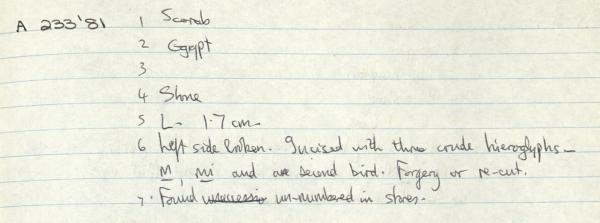 A 233'81 1 Scarab
2 Egypt
3
4 Stone
5 L- 1.7 cm-
6 Left side broken. Incised with three crude hieroglyphs -
m, mi and a second bird. Forgery or re-cut.
7. Found un-numbered in stores.